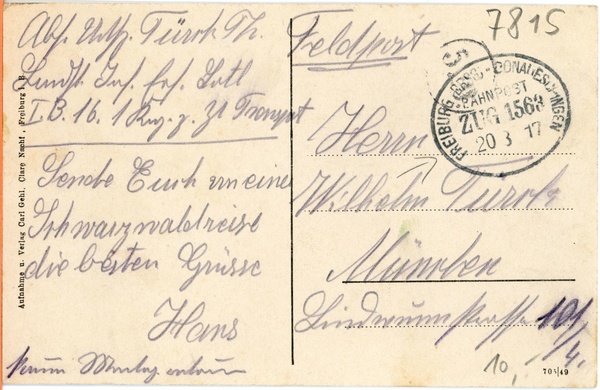 7815
Abs. Utffz. Türck Th.
Feldpost
Landst. Inf. Ers. Batl
I.B. 16. 1 Kmp. z. Zt Transport
FREIBURG (BRSG) - DONAUESCHINGEN
BAHNPOST
ZUG 1568
20 3 17
Herrn
Wilhelm Türck
München
Lindwurmstrasse 101/4.
Sende Euch von einer
Schwarzwaldreise
die besten Grüsse
Hans
Aufnahme u. Verlag Carl Gehl, Clare Nachf., Freiburg i. B.
10,
701/49